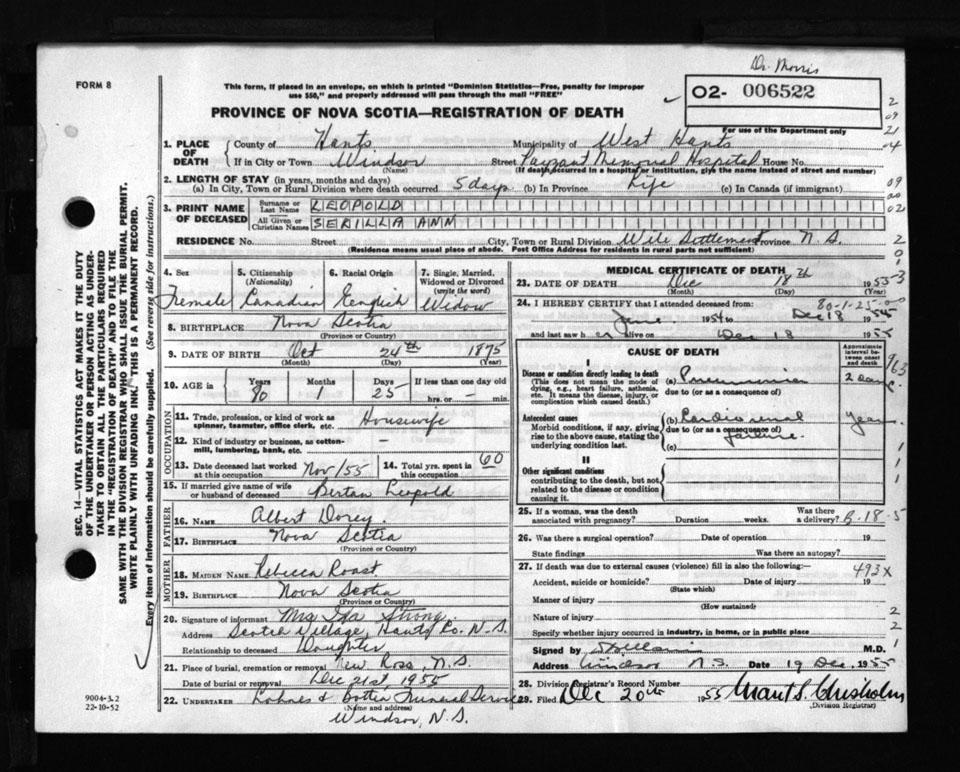 Dr. Morris
FORM 8
This form, if placed in an envelope, on which is printed "Dominion Statistics—Free, penalty for improper
use $50," and properly addressed will pass through the mail "FREE"
02- 006522
For use of the Department only
PROVINCE OF NOVA SCOTIA—REGISTRATION OF DEATH
2
09
21
04
09
00
02
2
0
1
3
1. PLACE OF DEATH
County of Hants Municipality of West Hants
If in City or Town Windsor Street Payzant Memorial Hospital House No.
(Name) (If death occurred in a hospital or institution, give the name instead of street and number)
2. LENGTH OF STAY (in years, months and days)
(a) In City, Town or Rural Division where death occurred 5 days (b) In Province Life (c) In Canada (if immigrant)
3. PRINT NAME OF DECEASED
Surname or Last Name LEOPOLD
All Given or Christian Names SERILLA ANN
RESIDENCE No. Street City, Town or Rural Division Wile Settlement Province N.S.
(Residence means usual place of abode. Post Office Address for residents in rural parts not sufficient)
4. Sex Female
5. Citizenship (Nationality) Canadian
6. Racial Origin English
7. Single, Married, Widowed or Divorced (write the word) Widow
8. BIRTHPLACE Nova Scotia
(Province or Country)
9. DATE OF BIRTH Oct 24th 1875
(Month) (Day) (Year)
10. AGE in Years 80 Months 1 Days 25 If less than one day old
hrs. or – min.
OCCUPATION
11. Trade, profession, or kind of work as
spinner, teamster, office clerk, etc. Housewife
12. Kind of industry or business, as cotton-
mill, lumbering, bank, etc. –
13. Date deceased last worked
at this occupation Nov/55
14. Total yrs. spent in
this occupation 60
15. If married give name of wife
or husband of deceased Bertan Leopold
FATHER
16. NAME Albert Dorey
17. BIRTHPLACE Nova Scotia
(Province or Country)
MOTHER
18. MAIDEN NAME Rebecca Roast
19. BIRTHPLACE Nova Scotia
(Province or Country)
20. Signature of informant Mrs Ida Strong
Address Scotch Village, Hants Co. N.S.
Relationship to deceased Daughter
21. Place of burial, cremation or removal New Ross, N.S.
Date of burial or removal Dec 21st 1955
22. UNDERTAKER Funeral Service
(Name and address)
Windsor, N.S.
MEDICAL CERTIFICATE OF DEATH
23. DATE OF DEATH Dec 18th 1955
(Month) (Day) (Year)
80-1-25-00
24. I HEREBY CERTIFY that I attended deceased from:
June 1954 to Dec 18 1955
and last saw h er alive on Dec 18 1955
CAUSE OF DEATH
Approximate interval between onset and death
I
Disease or condition directly leading to death
(This does not mean the mode of dying, e.g., heart failure, asthenia, etc. It means the disease, injury, or complication which caused death.)
(a) Pneumonia 2 days
due to (or as a consequence of)
963
Antecedent causes
Morbid conditions, if any, giving rise to the above cause, stating the underlying condition last.
(b) Cardio renal years
due to (or as a consequence of)
failure
(c)
II
Other significant conditions
contributing to the death, but not related to the disease or condition causing it.
1
1
1
25. If a woman, was the death
associated with pregnancy? Duration weeks. Was there a delivery? B-18-5
26. Was there a surgical operation? Date of operation 19
State findings Was there an autopsy?
27. If death was due to external causes (violence) fill in also the following:—
493X
Accident, suicide or homicide? Date of injury 19
(State which)
Manner of injury
(How sustained)
Nature of injury
Specify whether injury occurred in industry, in home, or in public place
2
2
1
Signed by M.D.
Address Windsor N.S. Date 19 Dec. 1955
28. Division Registrar's Record Number
29. Filed Dec 20th 1955 Grant S. Chisholm
(Division Registrar)
SEC. 14—VITAL STATISTICS ACT MAKES IT THE DUTY
OF THE UNDERTAKER OR PERSON ACTING AS UNDER-
TAKER TO OBTAIN ALL THE PARTICULARS REQUIRED
IN THE "REGISTRATION OF DEATH" AND TO FILE THE
SAME WITH THE DIVISION REGISTRAR WHO SHALL ISSUE THE BURIAL PERMIT.
WRITE PLAINLY WITH UNFADING INK. THIS IS A PERMANENT RECORD.
Every item of information should be carefully supplied. (See reverse side for instructions.)
9004-3.2
22-10-52